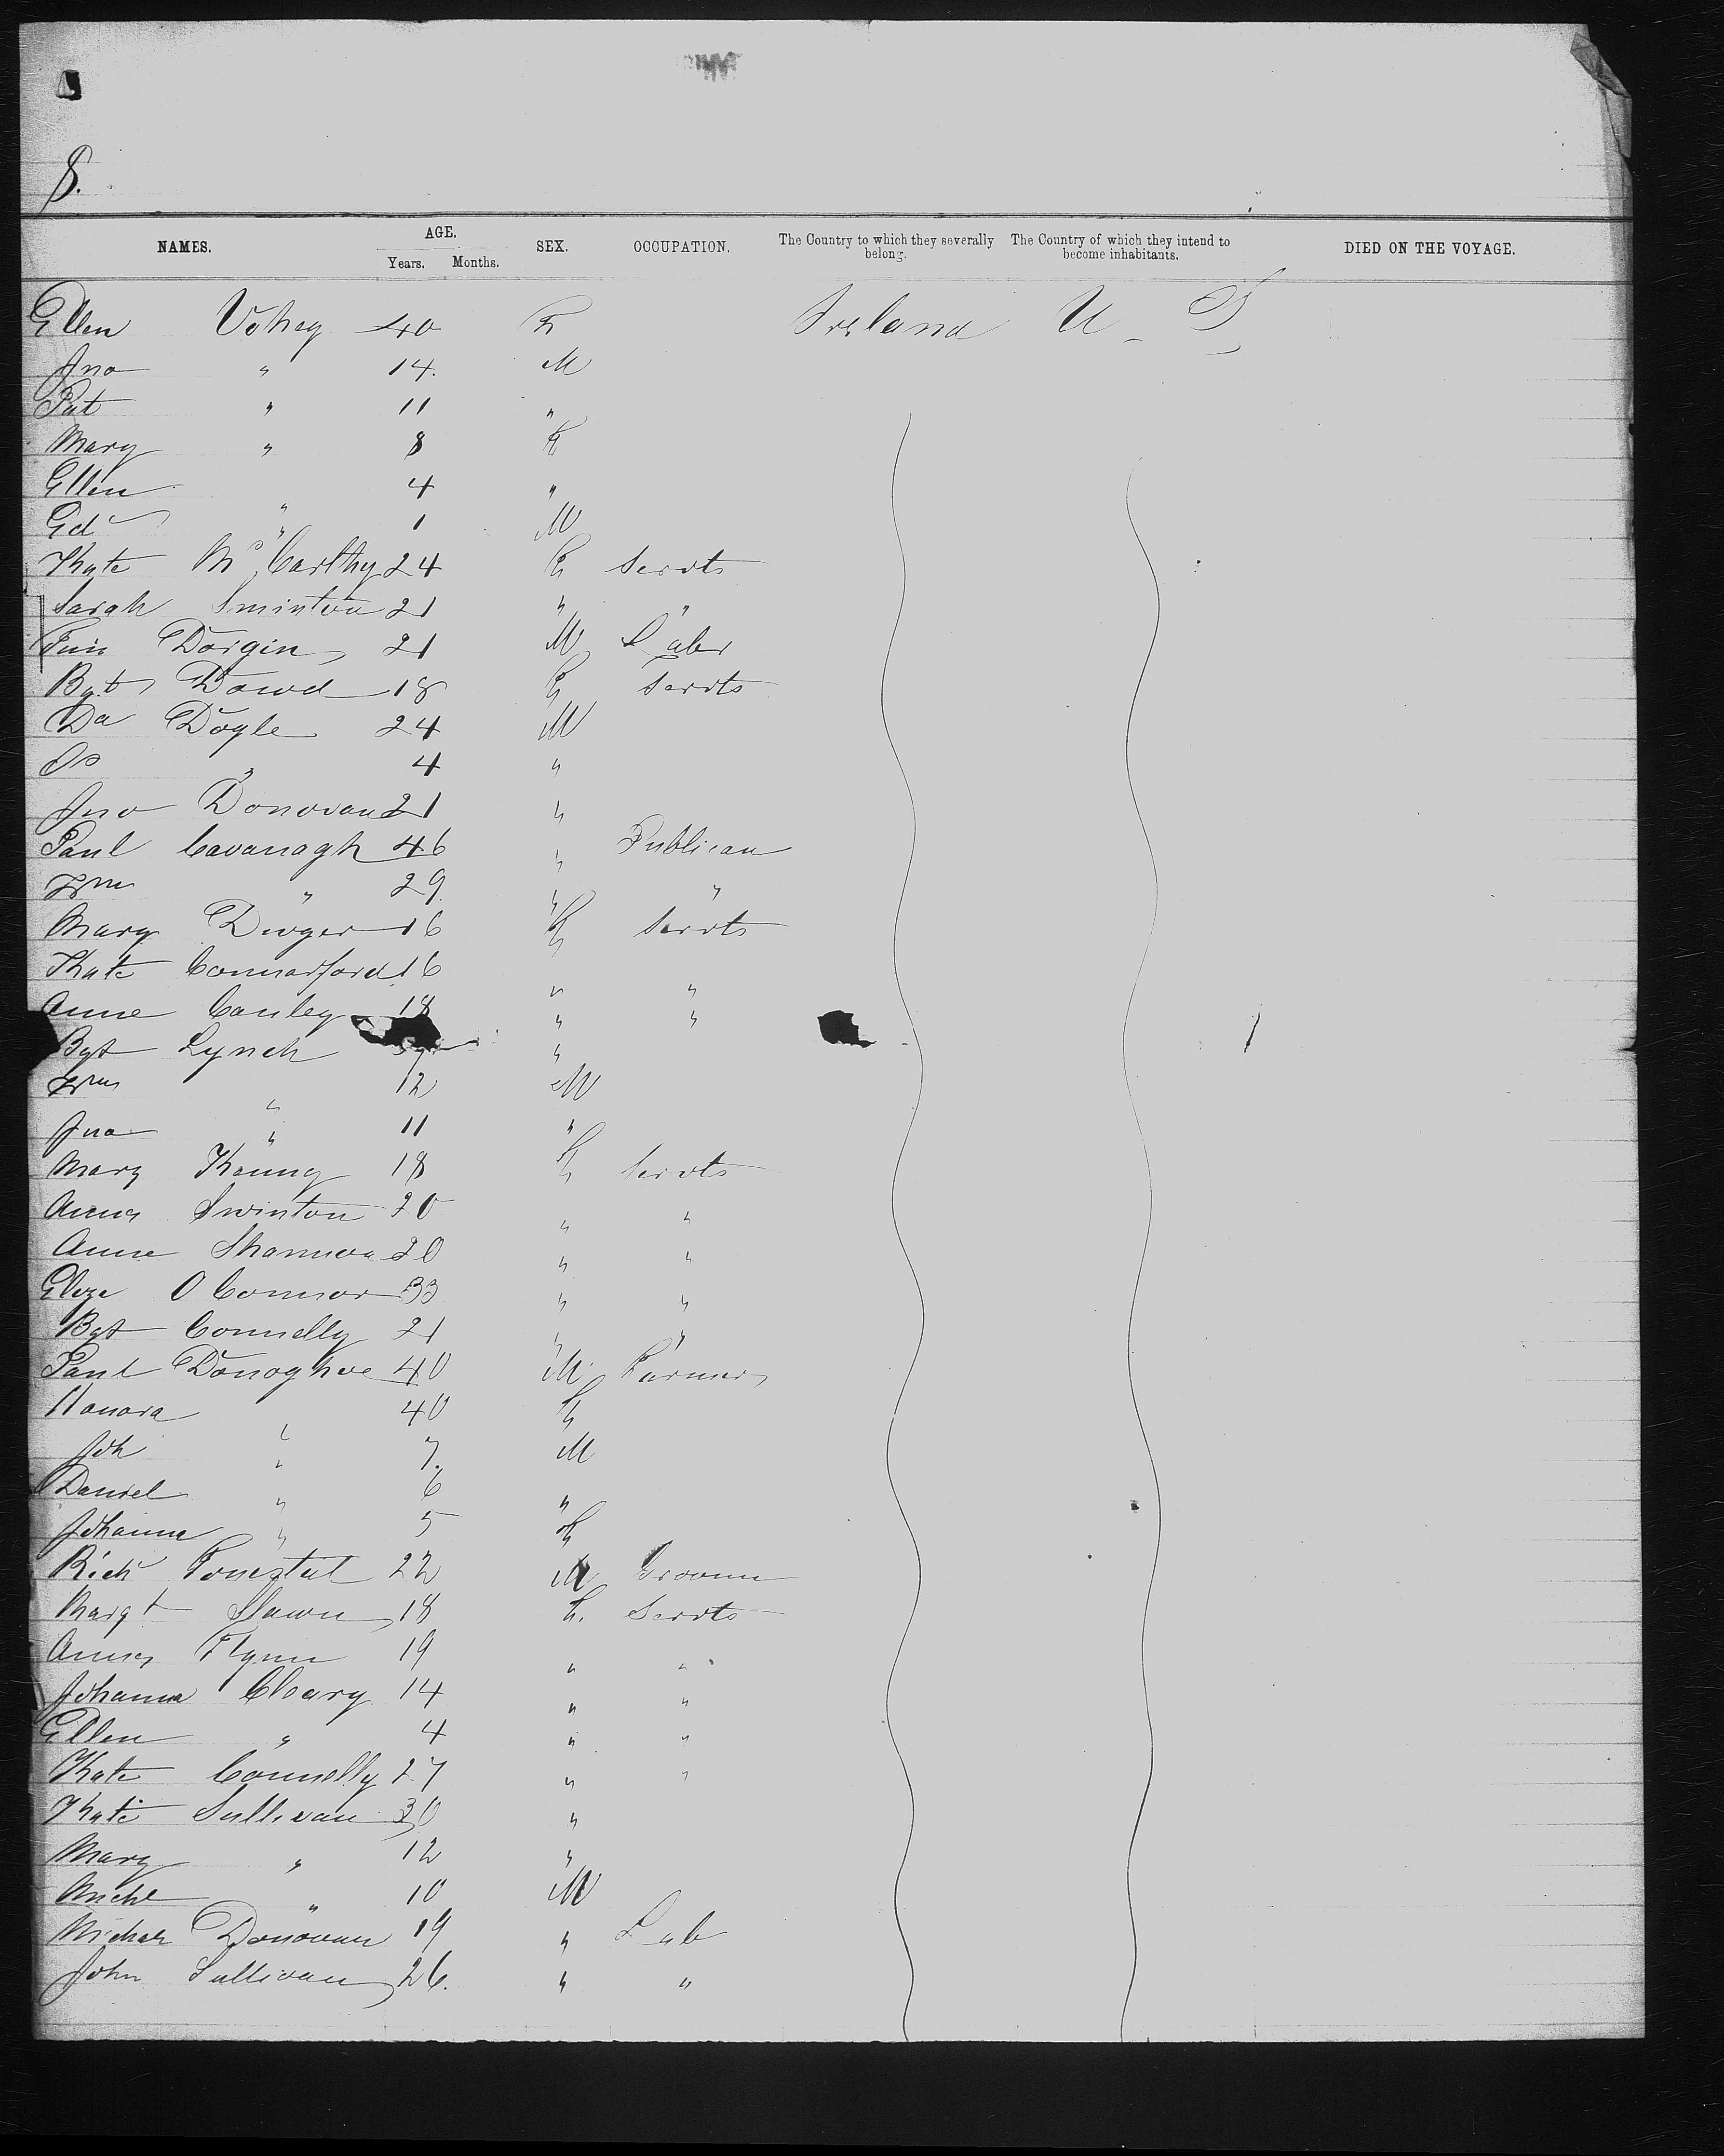 8.
NAMES. AGE. SEX. OCCUPATION. The Country to which they severally belong. The Country of which they intend to become inhabitants. DIED ON THE VOYAGE.
Years. Months.
Ellen Vohey 40 F Ireland U S
Jno " 14. M
Pat " 11 "
Mary " 8 F
Ellen " 4 "
Ed " 1 M
Kate McCarthy 24 F Servts
Sarah Swinton 21 " "
Tim Dorgin 21 M Labr
Bgt Dowd 18 F Servts
Da Doyle 24 M
" 4 "
Jno Donovan 21 "
Paul Cavanagh 46 " Publican
Wm " 29 " "
Mary Dwyer 16 F Servts
Kate 16 " "
Anne Canley 18 " "
Bgt Lynch "
Wm " 12 M
Jno " 11 "
Mary 18 F Servts
Annie Swinton 20 " "
Anne Shannon 20 " "
Eliza O Connor 33 " "
Bgt Connelly 21 " "
Paul Donoghue 40 M Farmer
Honora " 40 F
Joh " 7. M
Daniel " 6 "
Johanna " 5 F
Rich 22 M Groom
Margt 18 F. Servts
Annie Flynn 19 " "
Johanna Cleary 14 " "
Ellen " 4 " "
Kate Connelly 27 " "
Kate Sullivan 30 "
Mary " 12 "
Michl " 10 M
Donovan 19 " Lab
John Sullivan 26. " "